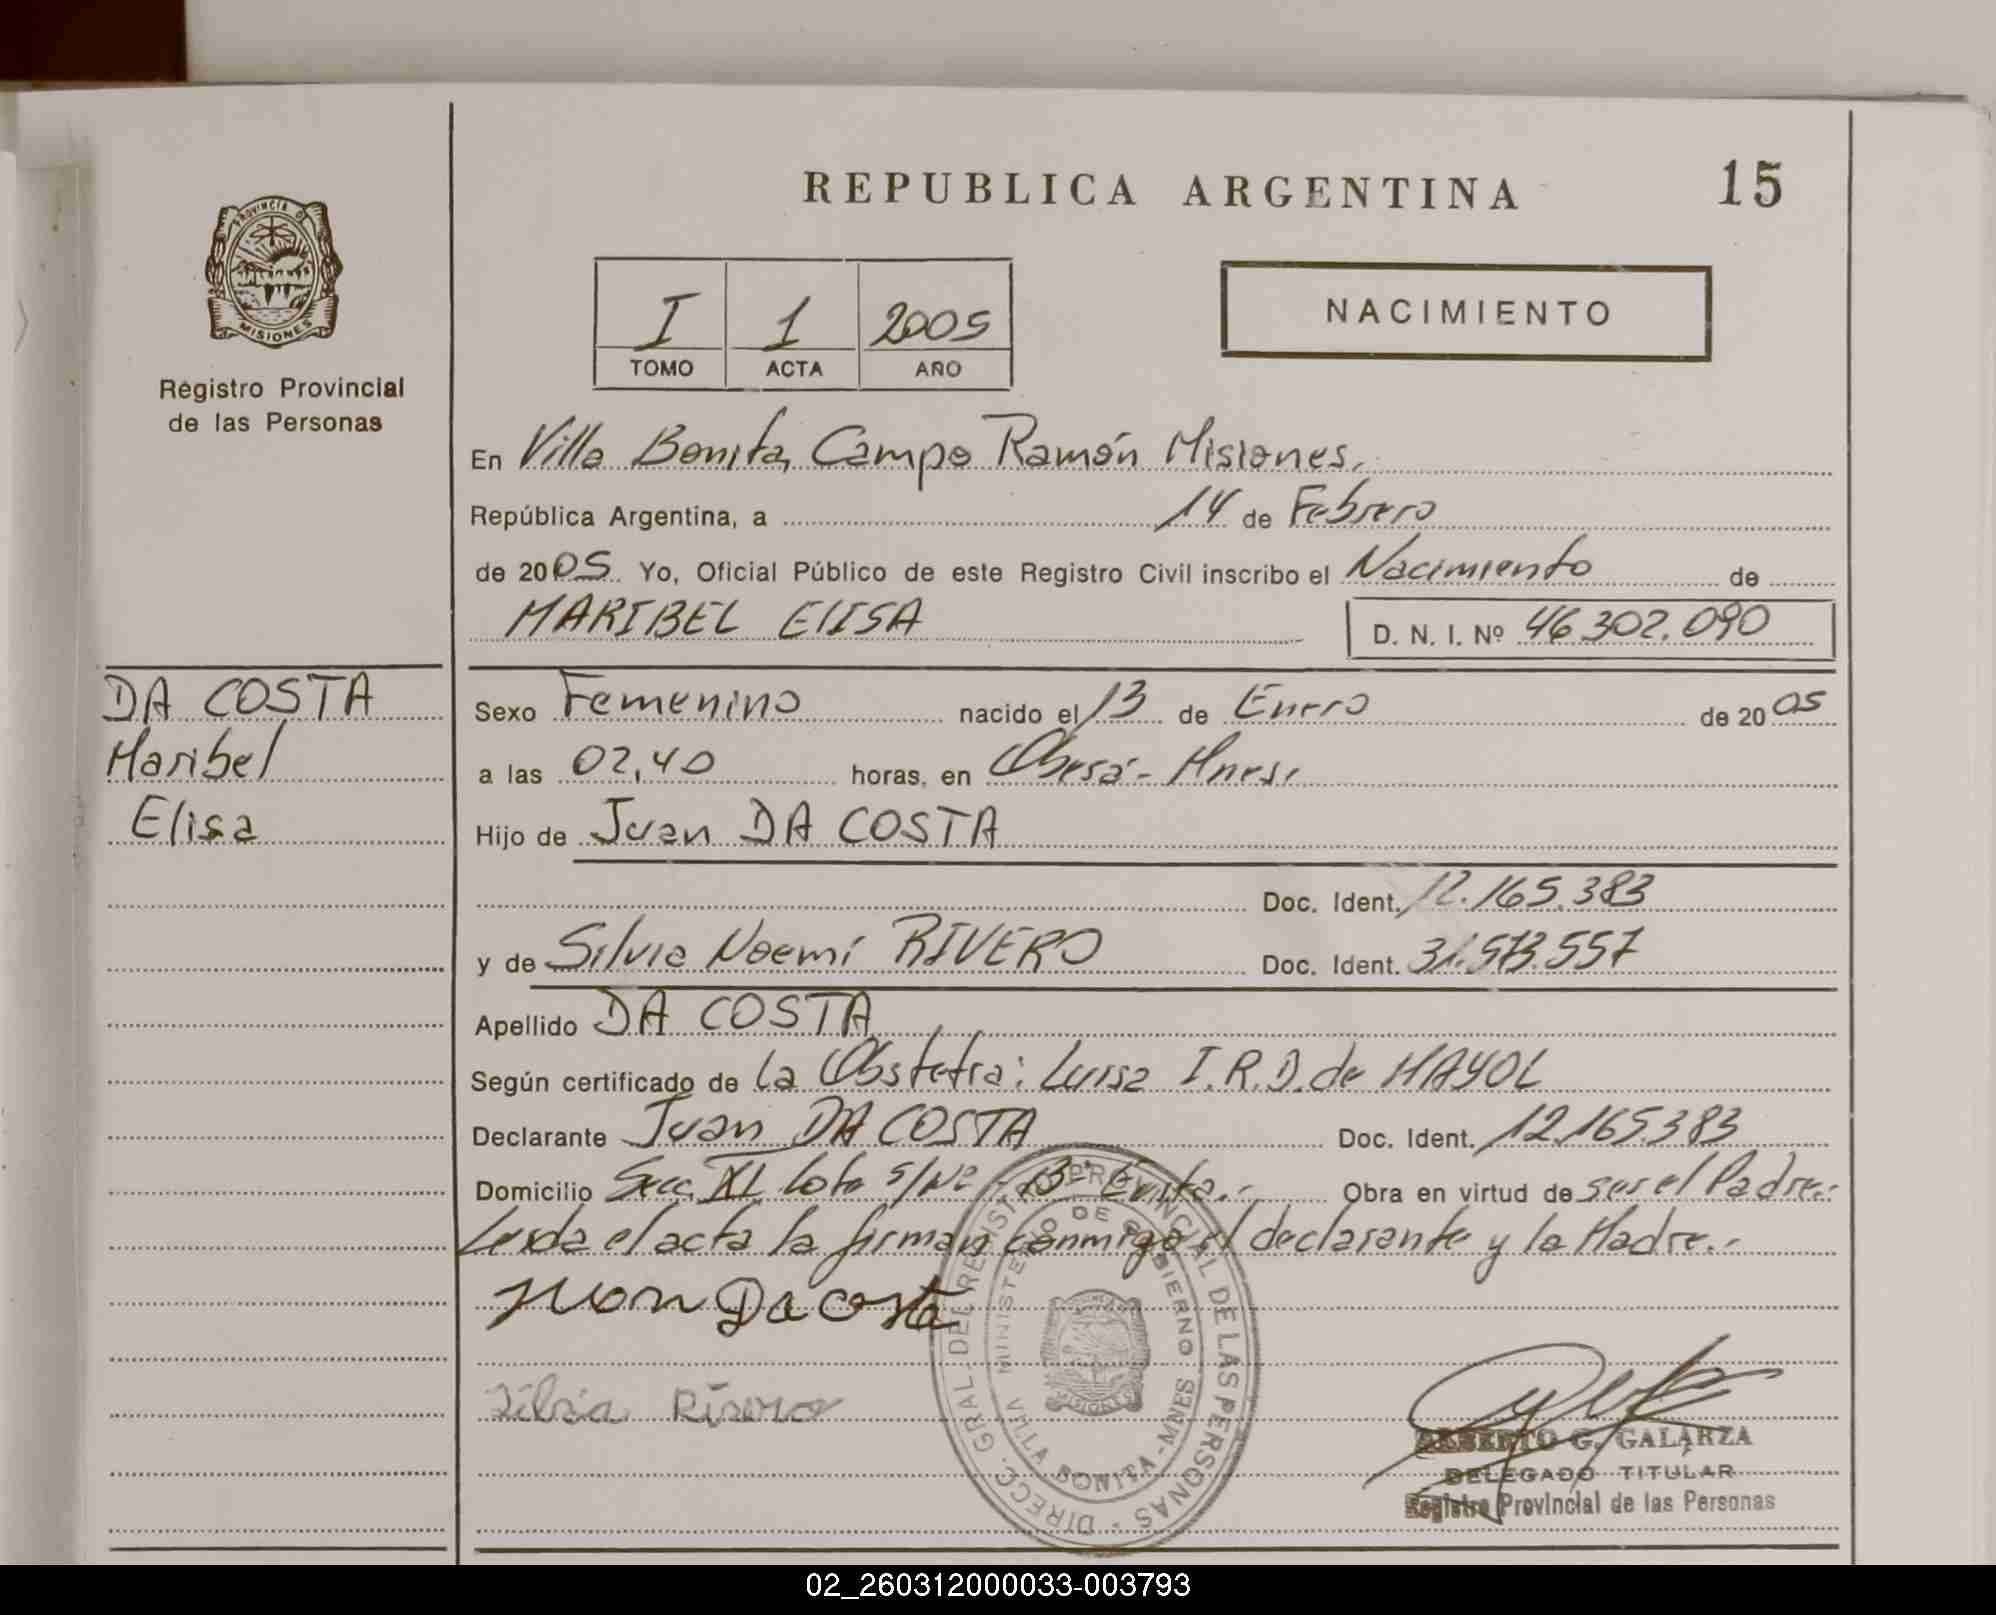 REPUBLICA ARGENTINA
15
PROVINCIA D
MISIONES
Registro Provincial
de las Personas
I 1 2005
TOMO ACTA AÑO
NACIMIENTO
En Villa Bonita, Campo Ramón Misiones.
República Argentina, a 14 de Febrero
de 2005 Yo, Oficial Público de este Registro Civil inscribo el Nacimiento de
MARIBEL ElISA D. N. I. Nº 46.302.090
DA COSTA
Maribel
Elisa
Sexo Femenino nacido el 13 de Enero de 2005
a las 02,40 horas, en Oberá - Mnes.
Hijo de Juan DA COSTA
Doc. Ident. 12.165.383
y de Silvia Noemí RIVERO Doc. Ident. 31.573.557
Apellido DA COSTA
Según certificado de la Obstetra: Luisa I.R.D. de MAYOL
Declarante Juan DA COSTA Doc. Ident. 12.165.383
Domicilio Secc. XI Lote s/Nº - Bº Evita.- Obra en virtud de ser el Padre.-
Leída el acta la firman conmigo el declarante y la Madre.-
Juan Da costa
Silvia Rivero
DIRECC. GRAL. DEL REGISTRO PROVINCIAL DE LAS PERSONAS
MINISTERIO DE GOBIERNO
VILLA BONITA - MNES
MISIONES
ALBERTO G. GALARZA
DELEGADO TITULAR
Registro Provincial de las Personas
02_260312000033-003793